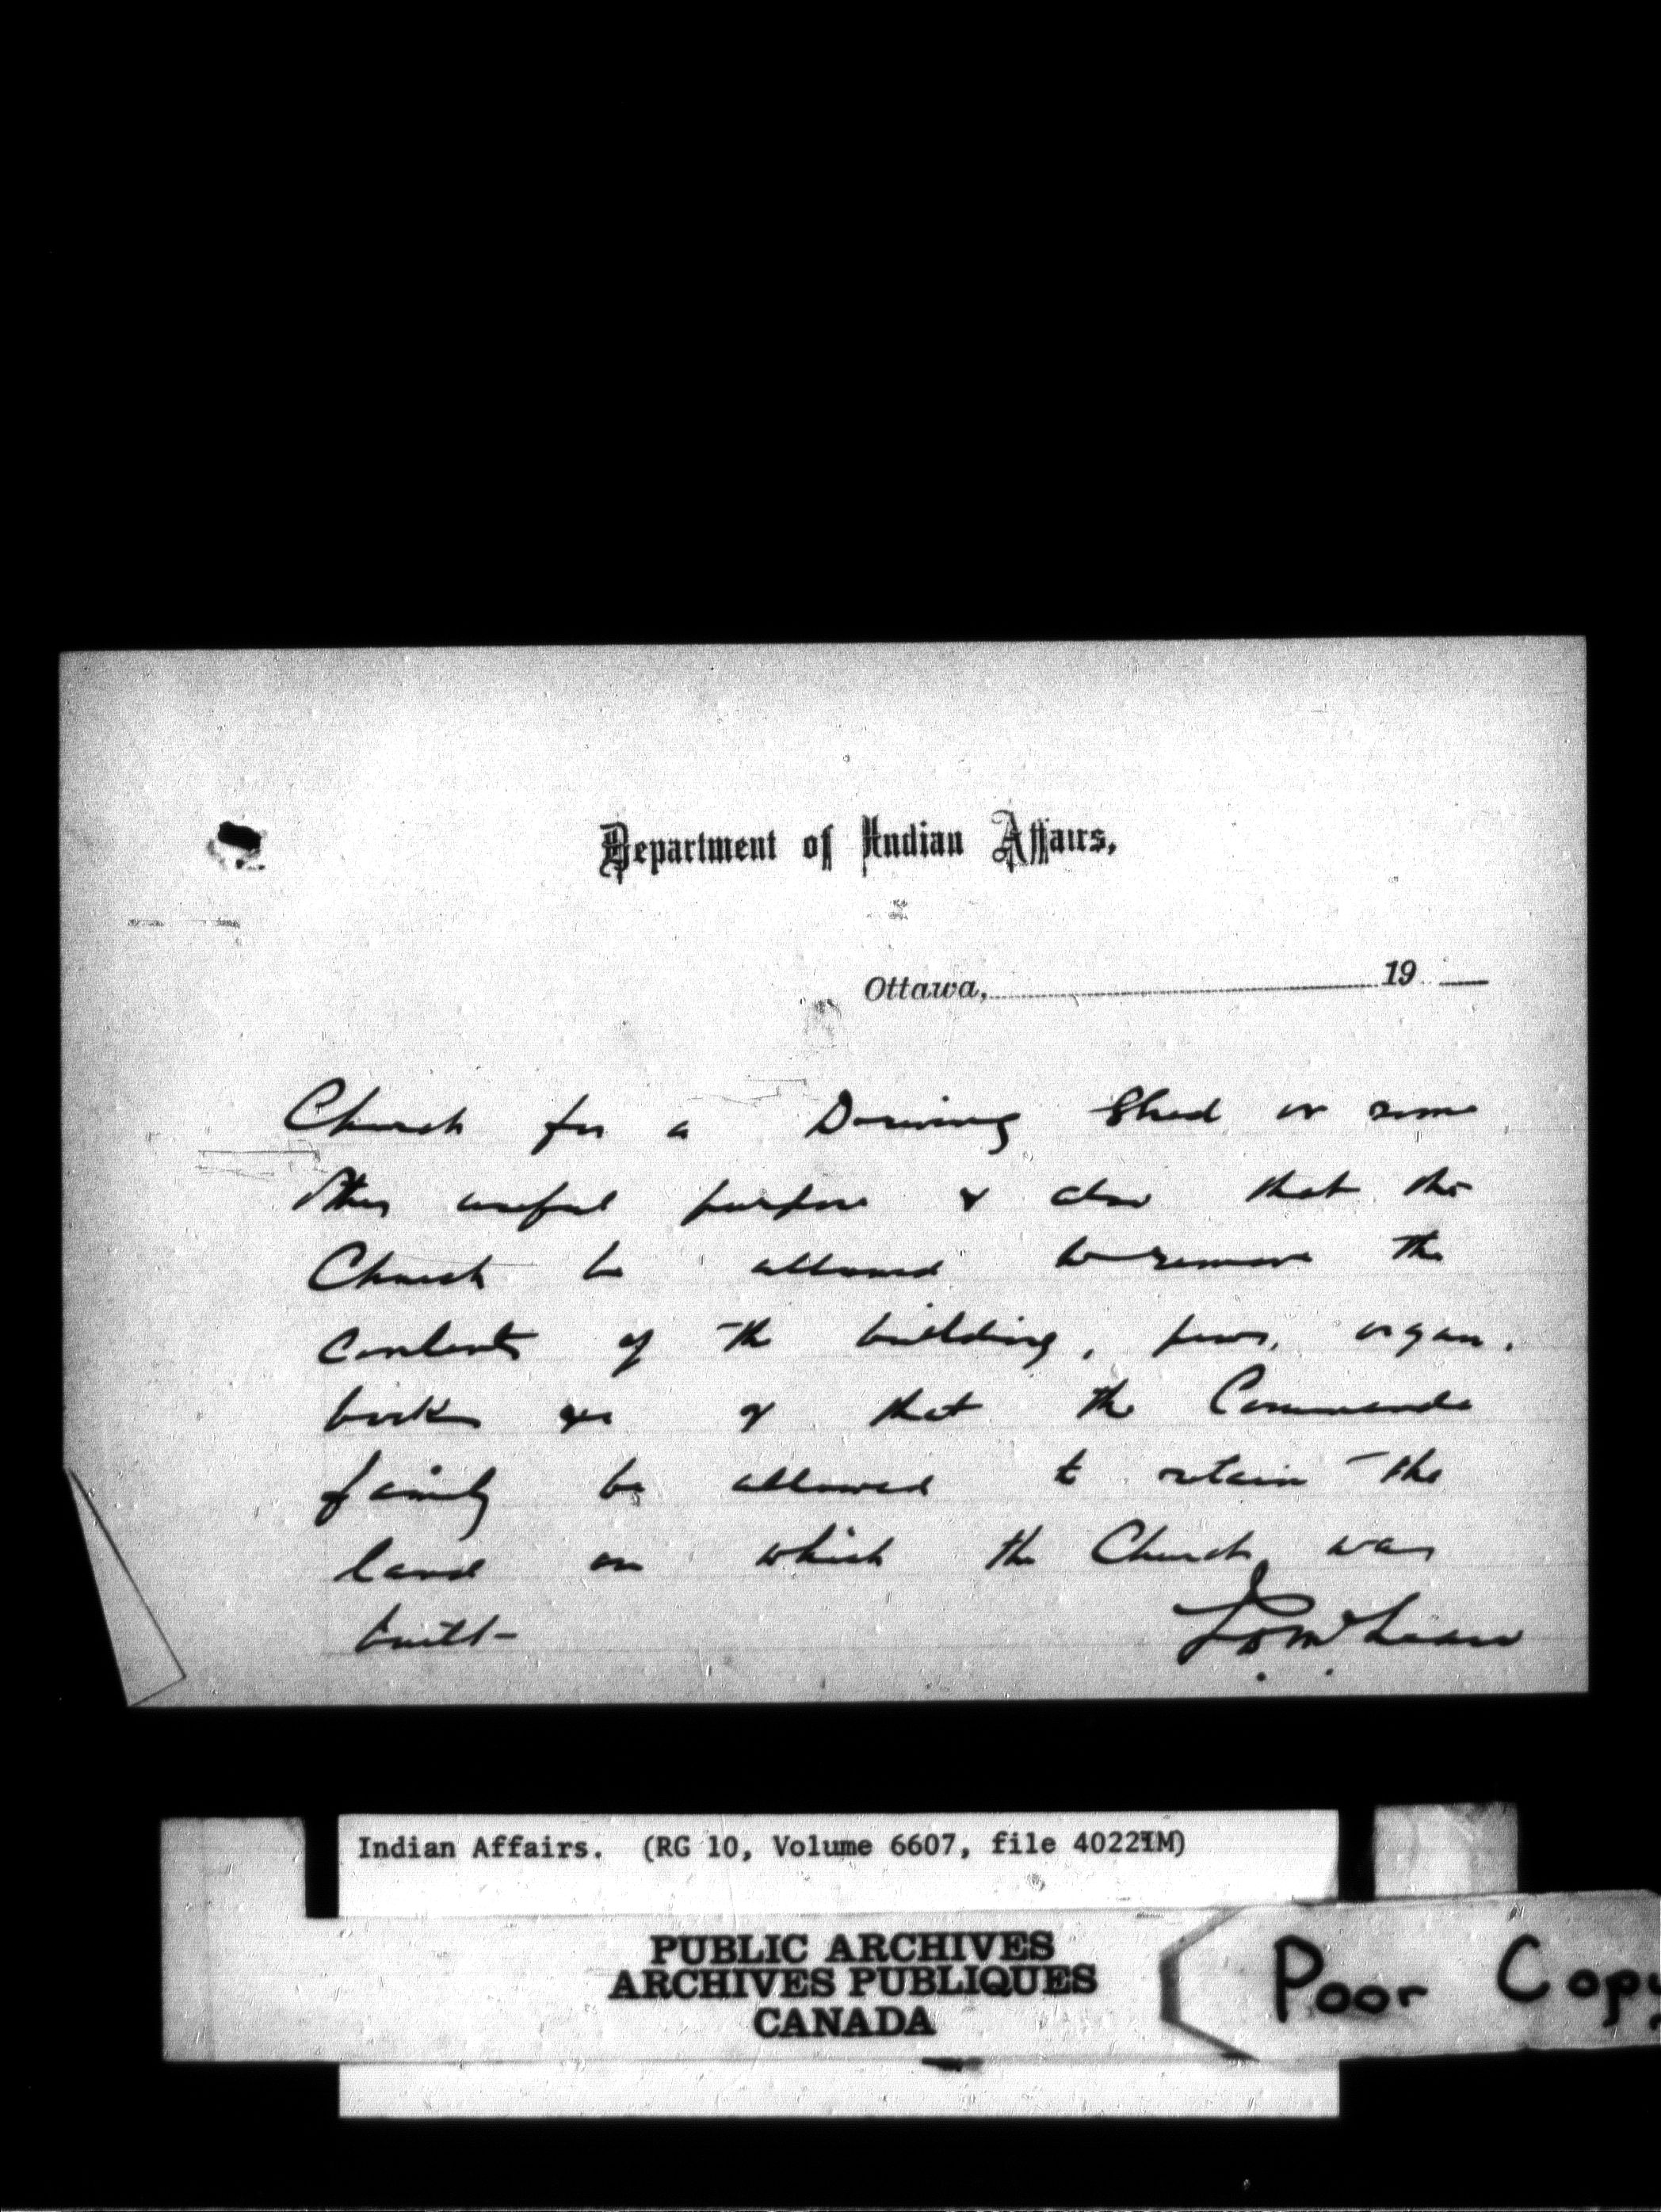 Department of Indian Affairs,
Ottawa, 19
Church for a Driving Shed or some
other useful purpose & also that the
Church be allowed to remove the
contents of the building, pews, organ,
books &c & that the Commanda
family be allowed to retain the
land on which the Church was
built-
J D McLean
Indian Affairs. (RG 10, Volume 6607, file 4022 1M)
PUBLIC ARCHIVES
ARCHIVES PUBLIQUES
CANADA
Poor Copy